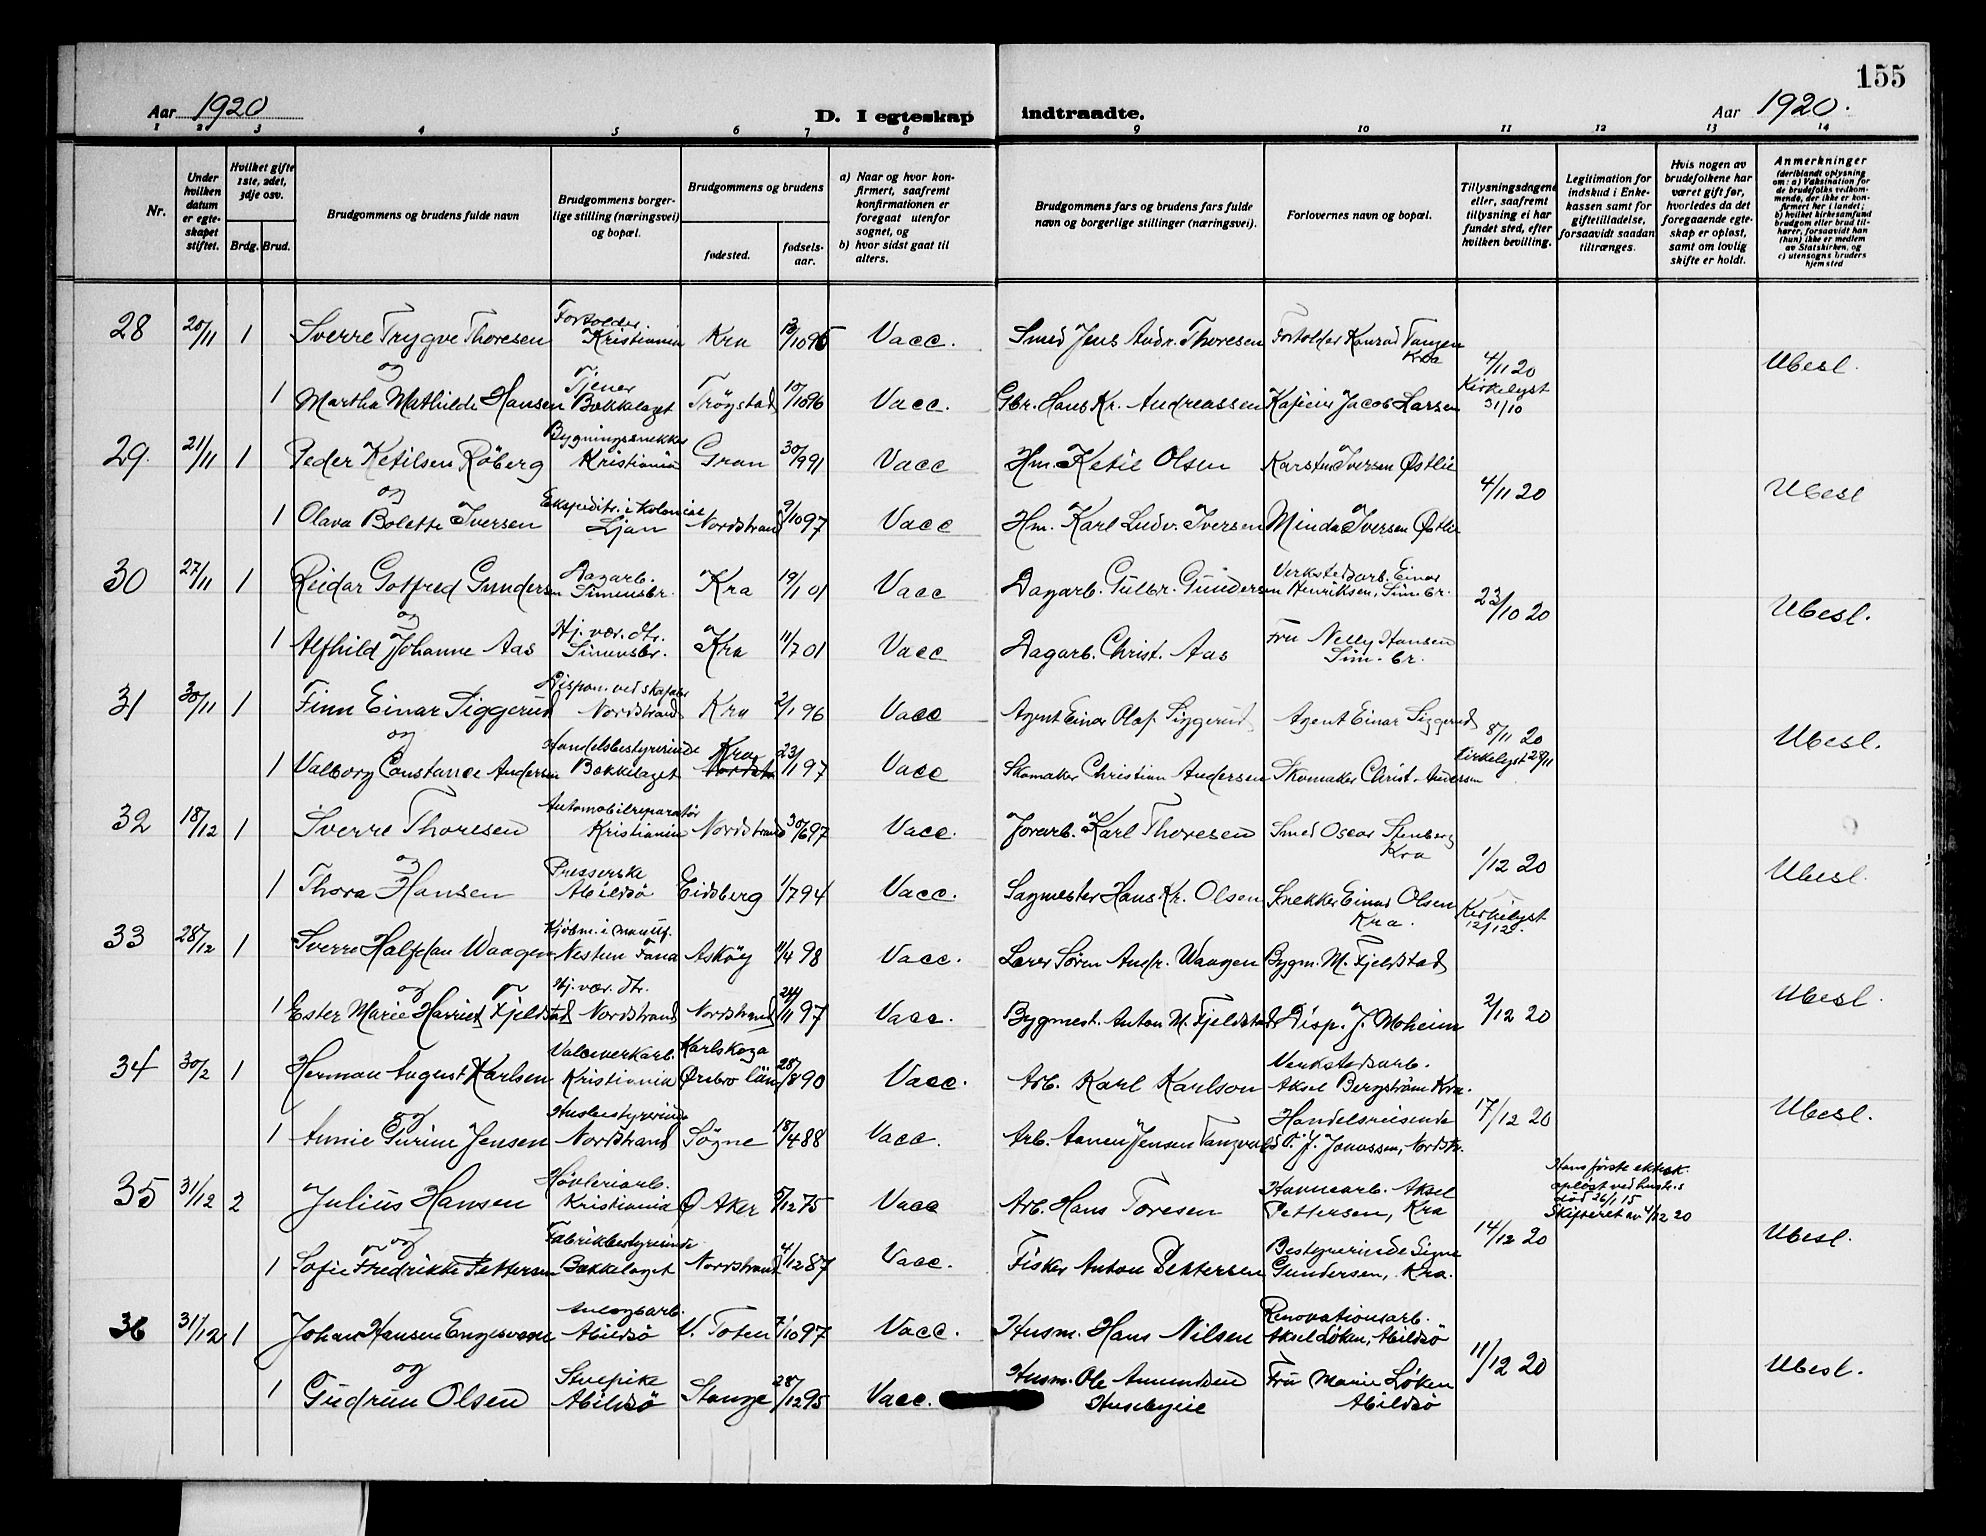 155
Aar 1920
D. I egteskap indtraadte.
Aar 1920.
1 2 3 4 5 6 7 8 9 10 11 12 13 14
Nr.
Under hvilken datum er egteskapet stiftet.
Hvilket gifte 1ste, 2det, 3dje osv.
Brdg. Brud.
Brudgommens og brudens fulde navn
Brudgommens borgerlige stilling (næringsvei) og bopæl.
Brudgommens og brudens
fødested.
fødselsaar.
a) Naar og hvor konfirmert, saafremt konfirmationen er foregaat utenfor sognet, og
b) hvor sidst gaat til alters.
Brudgommens fars og brudens fars fulde navn og borgerlige stillinger (næringsvei).
Forlovernes navn og bopæl.
Tillysningsdagene eller, saafremt tillysning ei har fundet sted, efter hvilken bevilling.
Legitimation for indskud i Enkekassen samt for giftetilladelse, forsaavidt saadan tiltrænges.
Hvis nogen av brudefolkene har været gift før, hvorledes da det foregaaende egteskap er opløst, samt om lovlig skifte er holdt.
Anmerkninger (deriblandt oplysning om: a) Vaksination for de brudefolks vedkommende, der ikke er konfirmert her i landet; b) hvilket kirkesamfund brudgom eller brud tilhører, forsaavidt han (hun) ikke er medlem av Statskirken, og c) utensogns bruders hjemsted
28 20/11 1 Sverre Trygve Thoresen Forsolder. Kristiania Kra Vacc. Smed Jens Andr. Thoresen Forsolder Konrad Tangen Kra 4/11 20 Ubesl.
og
1 Martha Mathilde Hansen Tjener Bækkelaget Trøgstad 10/10 96 Vacc. Gbr. Hans Kr. Andreassen Jacob Larsen Kirkelyst 31/10
29. 21/11 1 Peder Ketilsen Røberg Bygningssnekker Kristiania Gran 30/9 91 Vacc Hm. Ketil Olsen Karsten Iversen Østlie 4/11 20 Ubesl
og
1 Olava Bolette Iversen Ekspeditr. i kolonial Ljan Nordstrand 9/10 97 Vacc Hm. Karl Ludv. Iversen Minda Iversen Østlie
30 27/11 1 Reidar Gotfred Gundersen Dagarb. Simensbr. Kra 19/1 01 Vacc Dagarb. Gulbr. Gundersen Verkstedsarb. Einar Henriksen, Simbr. 23/10 20 Ubesl.
og
1 Alfhild Johanne Aas Hj. vær. dtr. Simensbr. Kra 11/7 01 Vacc Dagarb. Christ. Aas Fru Nelly Hansen Sim. br.
31 30/11 1 Finn Einar Siggerud Nordstrand Kra 2/1 96 Vacc Agent Einar Olaf Siggerud Agent Einar Siggerud 8/11 20 Ubesl.
og
1 Valborg Constance Andersen Handelsbestyrerinde Bækkelaget Kra Nordstr 23/11 97 Vacc Skomaker Christian Andersen Skomaker Christ. Andersen Kirkelyst 28/11
32 18/12 1 Sverre Thoresen Automobilreparatør Kristiania Nordstrand 30/6 97 Vacc. Forarb. Karl Thoresen Smed Oscar Stenberg Kra 1/12 20 Ubesl.
og
1 Thora Hansen Presserske Abildsø Eidsberg 1/7 94 Vacc. Sagmester Hans Kr. Olsen Snekker Einar Olsen Kra. Kirkelyst 12/12
33 28/12 1 Sverre Halfdan Waagen Kjøbm. i manuf. Nestun Fana Askøy 11/4 98 Vacc. Lærer Søren Andr. Waagen Bygm. M. Fjeldstad 2/12 20 Ubesl.
og
1 Ester Marie Harriet Fjeldstad Hj. vær. dtr. Nordstrand Nordstrand 24/11 97 Vacc. Bygmest. Anton M. Fjeldstad Disp. J. Moheim
34 30/2 1 Herman August Karlsen Valseverkarb. Kristiania Karlskoga Örebro län 28/8 90 Vacc. Arb. Karl Karlson Verkstedsarb. Aksel Bergström Kra. 17/12 20 Ubesl.
og
1 Annie Gurine Jensen Husbestyrerinde Nordstrand Søgne 18/4 88 Vacc. Arb. Aanen Jensen Tangvald Handelsreisende O. J. Jonassen, Nordstr.
35 31/12 2 Julius Hansen Høvleriarb. Kristiania Ø. Aker 5/12 75 Vacc Arb. Hans Toresen Havnearb. Aksel Pettersen, Kra 14/12 20 Hans første ektesk. opløst ved hustr.s død 26/1 15 Skifteret av 4/12 20 Ubesl.
og
1 Sofie Fredrikke Pettersen Fabrikbestyrerinde Bækkelaget Nordstrand 4/12 87 Vacc. Fisker Anton Pettersen Bestyrerinde Signe Gundersen, Kra.
36 31/12 1 Johan Hansen Engesveen Anlegsarb. Abildsø V. Toten 7/10 97 Vacc. Husm. Hans Nilsen Renovationsarb. Aksel Løken, Abildsø 11/12 20 Ubesl.
og
1 Gudrun Olsen Stuepike Abildsø Stange 28/12 95 Vacc. Husm. Ole Amundsen Husebyeie Fru Marie Løken Abildsø